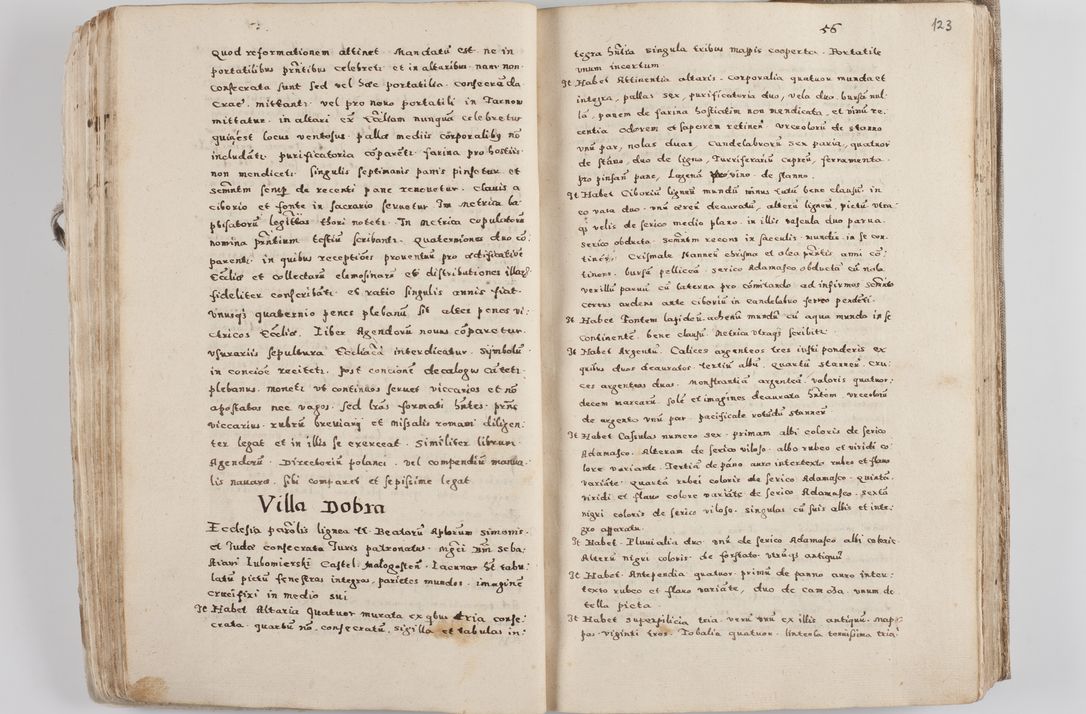 Quod reformationem attinet Mandatũ est ne in
portatilibus pñtibus celebreti et in altaribus nam non
consecrata sunt sed vel hæc portatilia consecranda
Crac. mittanti vel pro nouo portatili in Tarnow
mittatur. in altari eñ nunquã celebretur
locus ventosus. palla mediis corporalibꝫ nõ
includati. purificatoria cõpareti farina pro hostiis
non mendiceti. singulis septimanis panis pinsetur et
semñtm semp de recenti pane renouetur. Clauis a
ciborio et fonte in sacrario seruetur Im Metrica ba
ptisatorũ legittos thori noteti. In metrica copulatorũ
nomina pñtium testiũ scribanti. Quaterniones duo cõ
parenti. in quibus receptiões prouentuũ pro ædificatiõe
Eccliæ et collectarũ elemosinarũ et distributiones illarꝫ
fideliter conscribati et ratio singulis annis fiat.
Vnusqs quaternio penes plebanũ sit alter penes vi:
ctricos Eccliæ. Liber Agendorũ nouus cõparetur.
Vsurariis sepultura Ecclicã interdicatur. Symbolũ
in concioe reciteti. post concionẽ decalogus cãteti
plebanus. moneti vt continuos seruet viccarios et nõ
apostatas nec vagos. sed lrãs formati hñtes. pñs
viccarius. rubrũ breuiarij et missalis romani diligen:
ter legat et in illis se exerceat. similiter librum
Agendorũ. Directoriũ polanci. vel compendiũ manua
lis nauara. sibi comparet et sepissime legat
Villa Dobra
Ecclesia parolis lignea tt. Beatorũ Aplorum Simonis.
et Judæ consecrata Juris patronatus. Mgci Dñi Seba
stiani Lubomierski Castel. Malogosteñ. Lacunar hẽ tabu
latũ pictũ fenestras integras. parietes mundos. imaginẽ
crucifixi in medio sui
It Habet Altaria Quatuor murata ex qbus tria conse:
crata. quartũ nõ consecratũ, sigilla et tabulas in:
56
123
tegra hñtia singula tribus mappis cooperta. Portatile
vnum incertum
It Habet Attinentia altaris. Corporalia quatuor munda et
integra, pallas sex, purificatoria duo, vela duo. bursã nul
lã, panem de farina hosticalem non mendicata, et vinũ re
centia odorem et saporem retineñ. Vrceolorũ de stanno
vnũ par, nolas duas, Candelabrorũ sex paria, quatuor
de stãno, duo de ligno, Turriferariũ cupreũ, ferramenta
pro pinsañ pane, Lagenã pro vino de stanno
It Habet Ciboriũ ligneũ mundũ minus tutũ bene clausũ in
eo vasa duo. vnũ æreũ deauratũ, alterũ ligneũ, pictũ vtra
qꝫ velis de serico medio plaxo. in illis vascula duo parua
serico obducta. semñtm recens in sacculis mundis in se con
tineñ, Crismale stanneũ chrisma et olea pñtis anni cõ:
tinens. bursã pelliceã serico Adamasco obductã cũ nola
verillũ paruũ cũ laterna pro cõmitando ad infirmos semñto
cereus ardens ante ciboriũ in candelabro ferreo pendeti
It Habet Fontem lapideũ. acheniũ mundũ cũ aqua munda in se
continentẽ. bene clausũ. Metrica vtraqꝫ scribitr
It Habet Argentũ. Calices argenteos tres iusti ponderis ex
quibus duos deauratos. tertiũ albũ. quartũ stanneũ. Cru:
ces argenteas duas. monstrantiã argenteã valoris quatuor:
decem marcarũ. solẽ et imagines deauratas hñtem. vrceolorũ
de argento vnũ par. pacificale rotũdũ stanneũ
It Habet Casulas numero sex. primam albi coloris de serico
Adamasco. Alteram de serico viloso. albo rubeo et viridi co
lore variante. Tertiã de pãno auro intertexto rubeo et flauo
variãte. Quartã rubei coloris de serico Adamasco. Quintã
viridi et flauo colore variãte de serico Adamasco. sextã
nigri coloris de serico viloso. singulas cũ suis albis et inte:
gro apparatu.
It Habet. Pluuialia duo. vnũ de serico Adamasco albi coloris
Alterũ nigri coloris. de forstato. vtrũqꝫ antiquũ.
It Habet. Antependia quatuor. primũ de panno auro inter:
texto rubeo et flauo variãte, duo de camcha. vnum de
tella picta.
It Habet superpilicia tria. verũ vnũ ex illis antiquũ. map
pas. viginti tres. Tobalia quatuor. linteola tenuissima tria